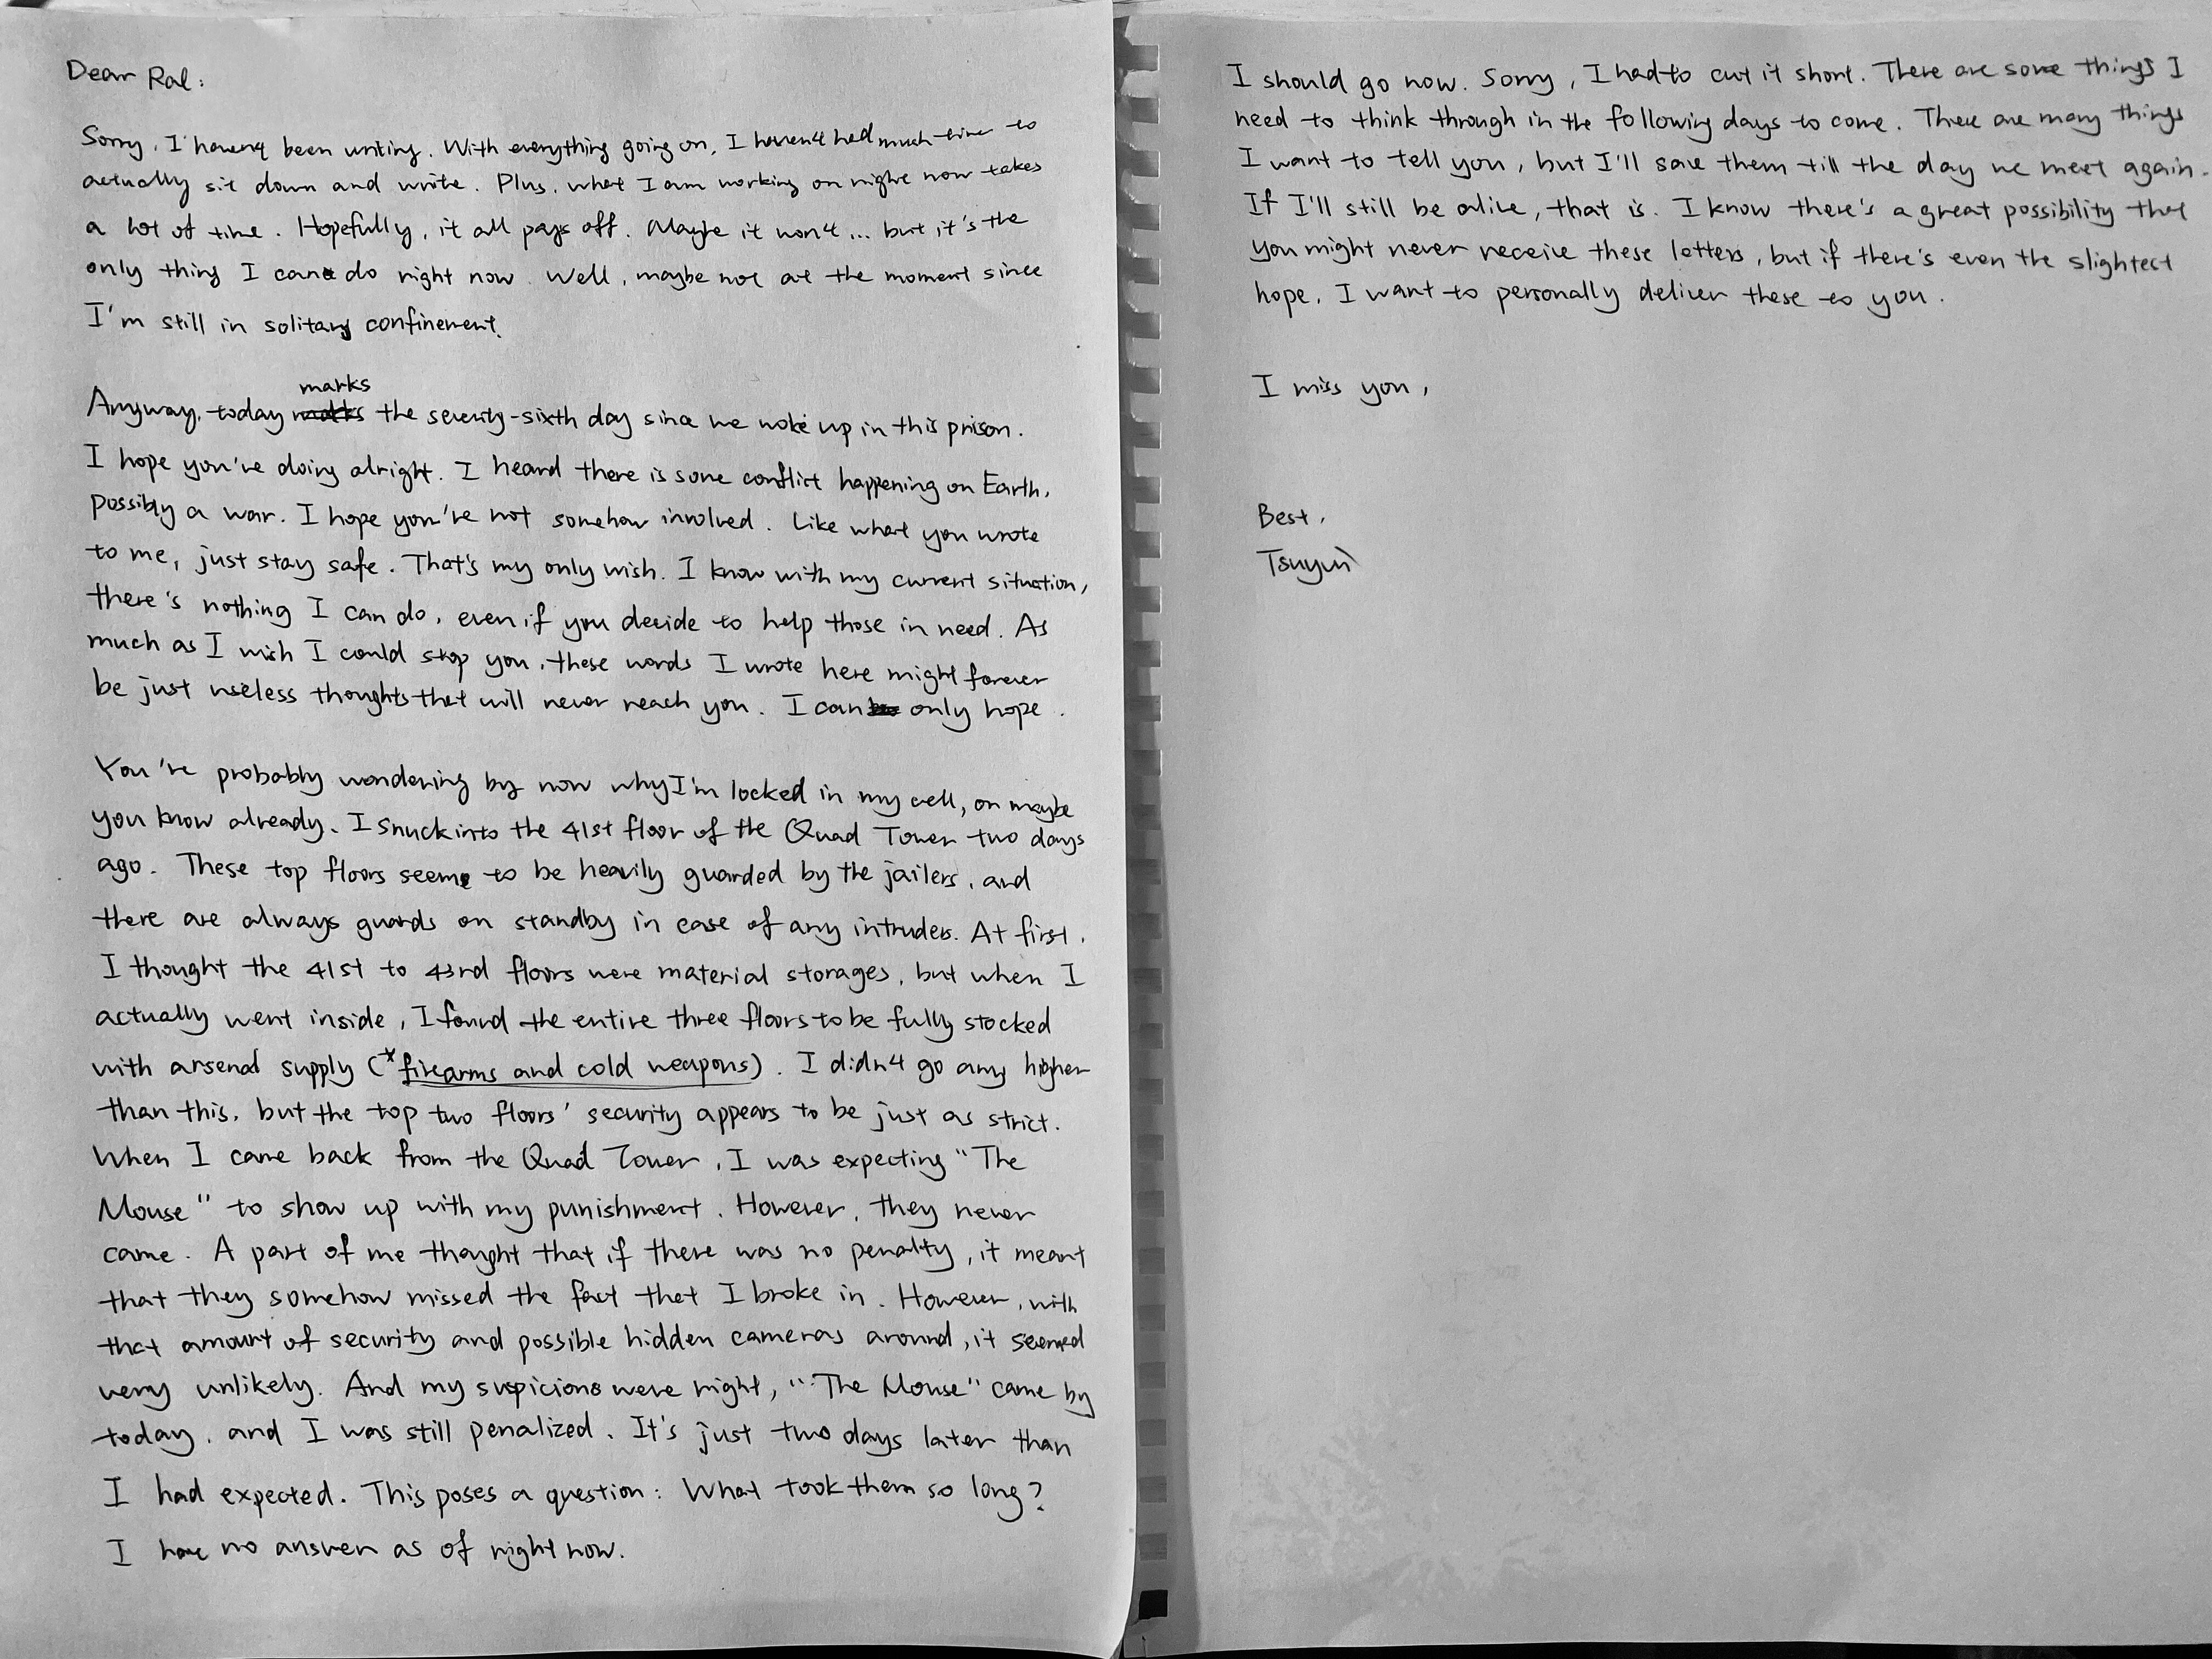 Dear Ral:
Sorry, I haven't been writing. With everything going on, I haven't had much time to
actually sit down and write. Plus, what I am working on right now takes
a lot of time. Hopefully, it all pays off. Maybe it won't... but it's the
only thing I can do right now. Well, maybe not at the moment since
I'm still in solitary confinement.
marks
Anyway, today the seventy-sixth day since we woke up in this prison.
I hope you're doing alright. I heard there is some conflict happening on Earth,
possibly a war. I hope you're not somehow involved. Like what you wrote
to me, just stay safe. That's my only wish. I know with my current situation,
there's nothing I can do, even if you decide to help those in need. As
much as I wish I could stop you, these words I wrote here might forever
be just useless thoughts that will never reach you. I can only hope.
You're probably wondering by now why I'm locked in my cell, or maybe
you know already. I snuck into the 41st floor of the Quad Tower two days
ago. These top floors seem to be heavily guarded by the jailers, and
there are always guards on standby in case of any intruders. At first,
I thought the 41st to 43rd floors were material storages, but when I
actually went inside, I found the entire three floors to be fully stocked
with arsenal supply (*firearms and cold weapons). I didn't go any higher
than this, but the top two floors' security appears to be just as strict.
When I came back from the Quad Tower, I was expecting "The
Mouse" to show up with my punishment. However, they never
came. A part of me thought that if there was no penalty, it meant
that they somehow missed the fact that I broke in. However, with
that amount of security and possible hidden cameras around, it seemed
very unlikely. And my suspicions were right, "The Mouse" came by
today, and I was still penalized. It's just two days later than
I had expected. This poses a question: What took them so long?
I have no answer as of right now.
I should go now. Sorry, I had to cut it short. There are some things I
need to think through in the following days to come. There are many things
I want to tell you, but I'll save them till the day we meet again.
If I'll still be alive, that is. I know there's a great possibility that
you might never receive these letters, but if there's even the slightest
hope, I want to personally deliver these to you.
I miss you,
Best,
Tsuyun